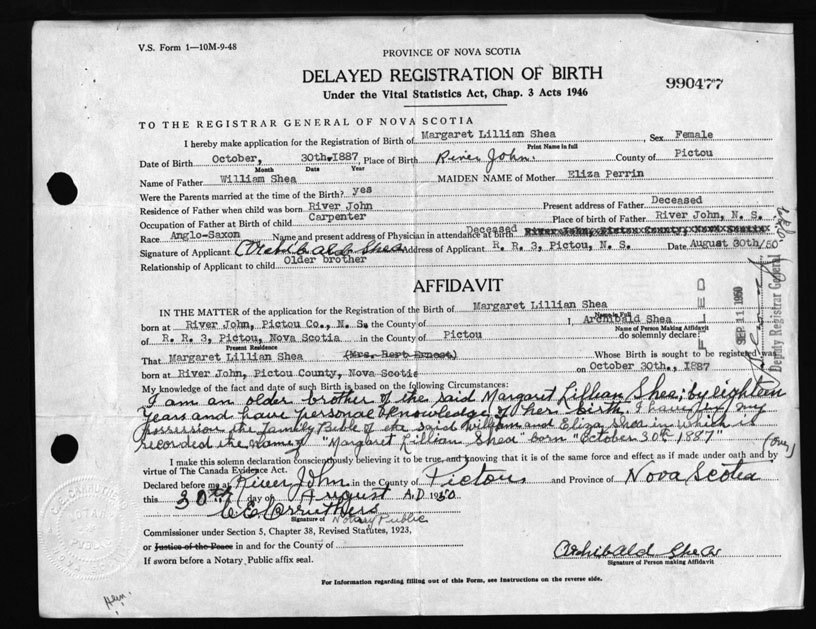 V.S. Form 1—10M-9-48
PROVINCE OF NOVA SCOTIA
DELAYED REGISTRATION OF BIRTH
990477
Under the Vital Statistics Act, Chap. 3 Acts 1946
TO THE REGISTRAR GENERAL OF NOVA SCOTIA
I hereby make application for the Registration of Birth of Margaret Lillian Shea, Sex Female
Print Name in full
Date of Birth October, 30th.1887, Place of Birth River John. County of Pictou
Month Date Year
Name of Father William Shea MAIDEN NAME of Mother Eliza Perrin
Were the Parents married at the time of the Birth? yes
Residence of Father when child was born River John Present address of Father Deceased
Occupation of Father at Birth of child Carpenter Place of birth of Father River John, N. S.
Race Anglo-Saxon Name and present address of Physician in attendance at birth Deceased River John, Pictou County, Nova Scotia
Signature of Applicant Archibald Shea Address of Applicant R. R. 3, Pictou, N. S. Date August 30th/50
Relationship of Applicant to child Older brother
AFFIDAVIT
FILED
SEP 11 1950
Deputy Registrar General
IN THE MATTER of the application for the Registration of the Birth of Margaret Lillian Shea
Name in Full
born at River John, Pictou Co., N. S. the County of I, Archibald Shea
Name of Person Making Affidavit
of R. R. 3, Pictou, Nova Scotia in the County of Pictou do solemnly declare:
Present Residence
That Margaret Lillian Shea (Mrs. Bert Ernest) Whose Birth is sought to be registered was
born at River John, Pictou County, Nova Scotia on October 30th., 1887
My knowledge of the fact and date of such Birth is based on the following Circumstances:
I am an older brother of the said Margaret Lillian Shea; by eighteen
years and have personal knowledge of her birth. I have in my
possession the Family Bible of the said William and Eliza Shea in which is
recorded the name of "Margaret Lillian Shea" born "October 30th 1887"
(Over)
I make this solemn declaration conscientiously believing it to be true, and knowing that it is of the same force and effect as if made under oath and by
virtue of The Canada Evidence Act.
Declared before me at River John in the County of Pictou and Province of Nova Scotia
this 30th day of August A.D. 1950
C E Carruthers
Signature of Notary Public
Commissioner under Section 5, Chapter 38, Revised Statutes, 1923,
or Justice of the Peace in and for the County of
Archibald Shea
Signature of Person making Affidavit
If sworn before a Notary Public affix seal.
For Information regarding filling out of this Form, see Instructions on the reverse side.